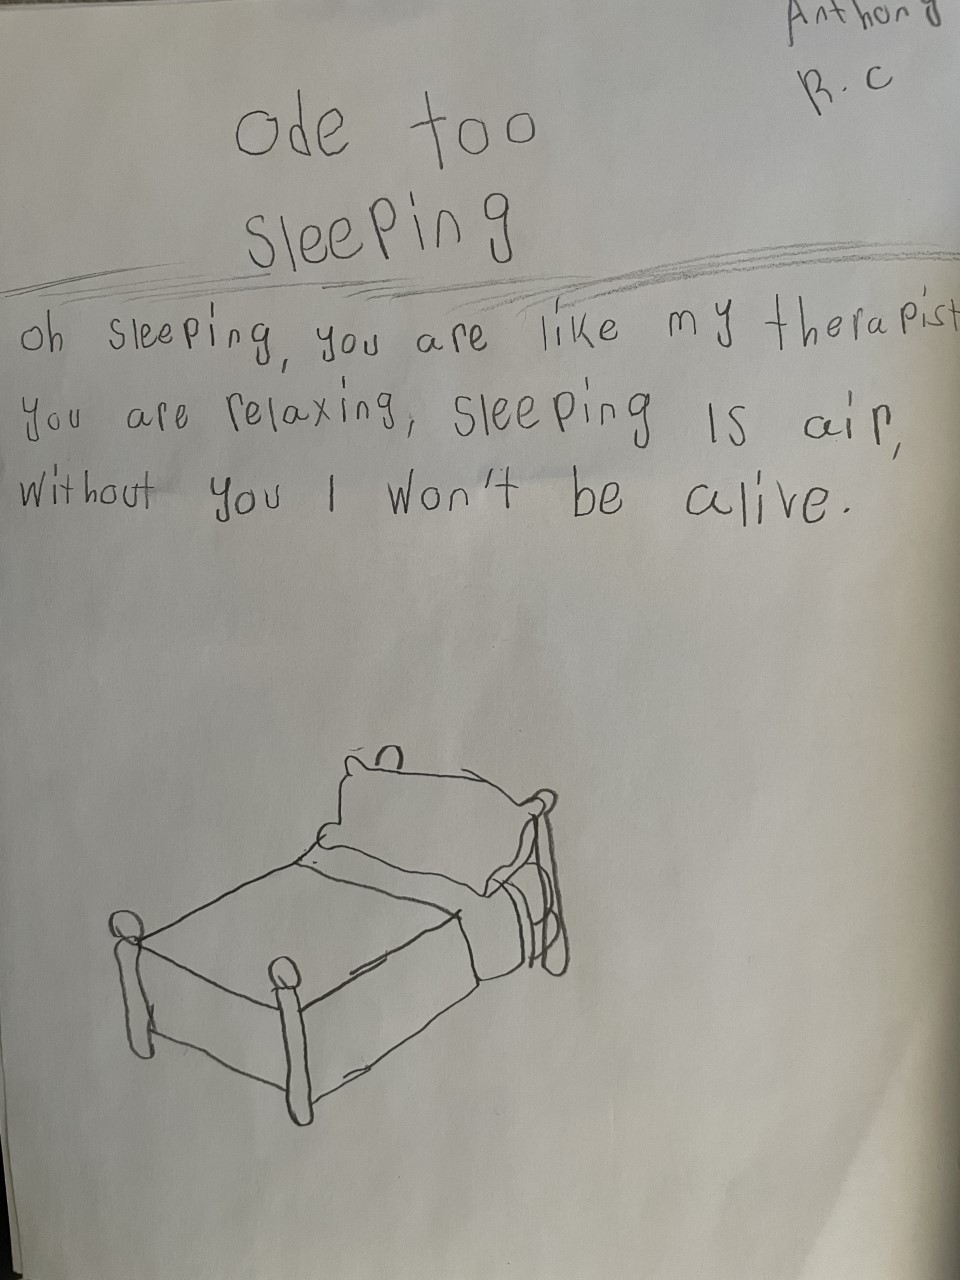 Anthony
R.C
Ode too
Sleeping
Oh sleeping, you are like my therapist
you are relaxing, sleeping is air,
without you I won't be alive.